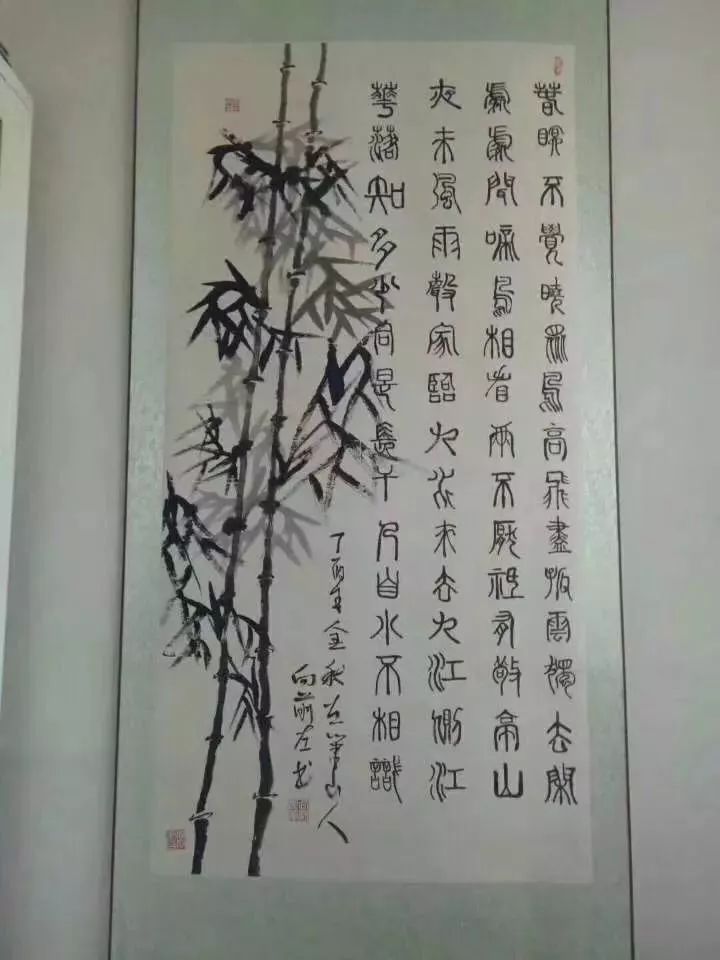 春眠不覺曉眾鳥高飛盡孤雲獨去閑
處處聞啼鳥相看兩不厭祗有敬亭山
夜來風雨聲家臨九水來去九江側江
華落知多少同是長干人自小不相識
丁酉年金秋左筆山人
向前左书